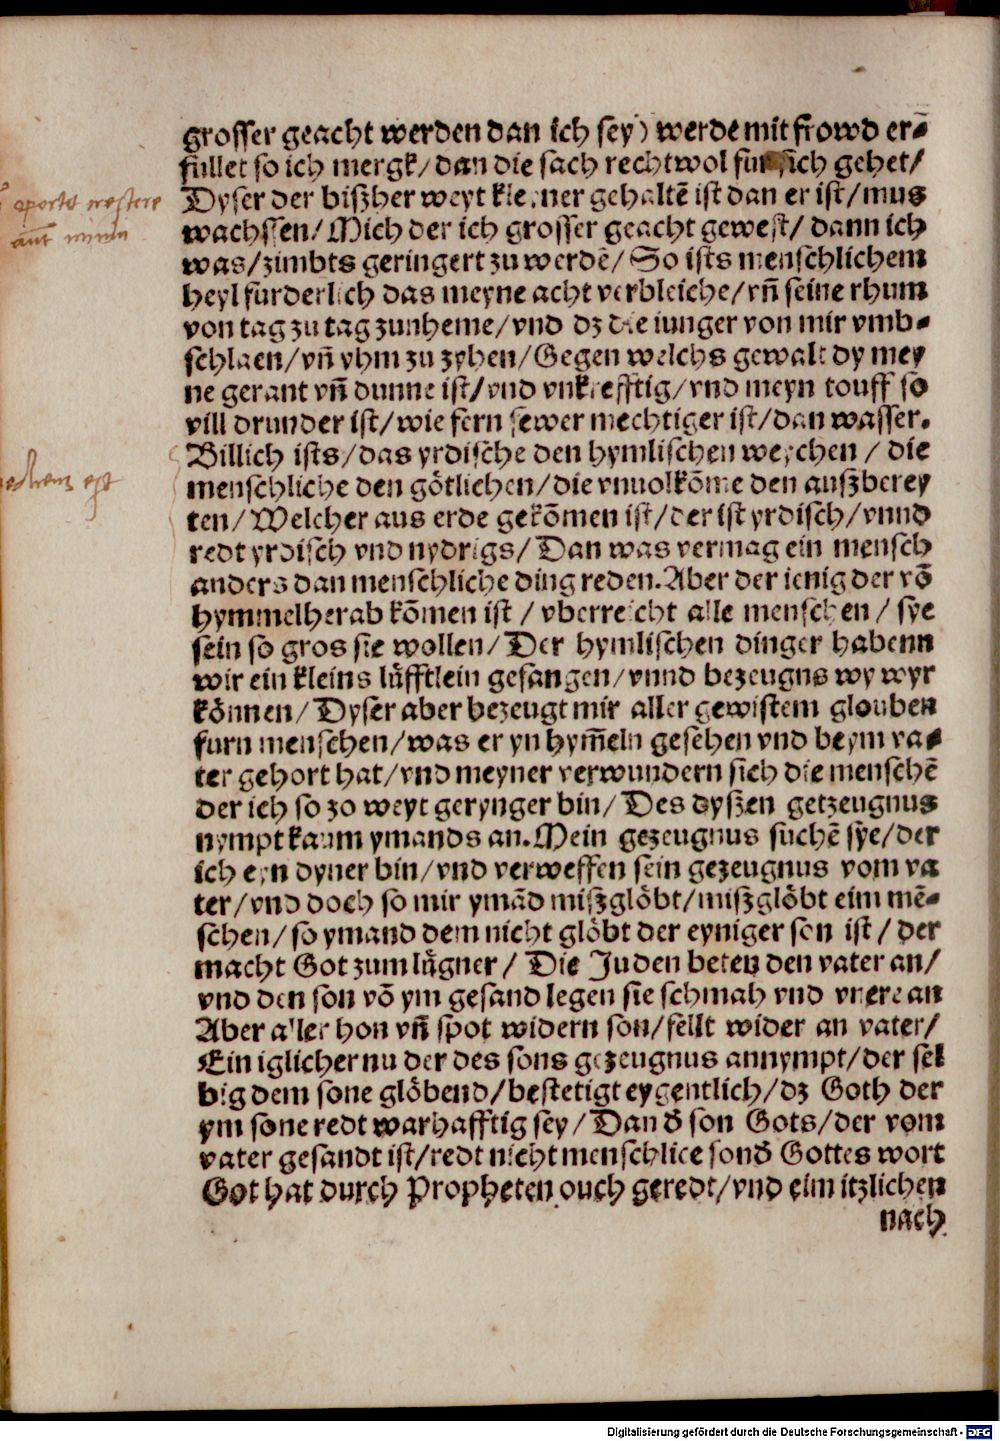 grosser geacht werden dan ich sey) werde mit frowd er⸗
füllet so ich mergk/ dan die sach recht wol für sich gehet/
Dyser der bißher weyt kleyner gehaltē ist dan er ist/ mus
oportet crescere
wachssen/ Mich der ich grosser geacht gewest/ dann ich
aūt minui
was/ zimbts geringert zu werdē/ So ists menschlichem
heyl fürderlich das meyne acht verbleiche/ vn̄ seine rhum
von tag zu tag zunheme/ vnd dz die iunger von mir vmb⸗
schlaen/ vn̄ yhm zu zyhen/ Gegen welchs gewalt dy mey
ne gerant vn̄ dunne ist/ vnd vnkrefftig/ vnd meyn touff so
vill drunder ist/ wie fern fewer mechtiger ist/ dan wasser.
Billich ists/ das yrdische den hymlischen weychen / die
est
menschliche den götlichen/ die vnuolkōme den außberey
ten/ Welcher aus erde gekōmen ist/ der ist yrdisch/ vnnd
redt yrdisch vnd nydrigs/ Dan was vermag ein mensch
anders dan menschliche ding reden. Aber der ienig der vō
hymmelherab kōmen ist / vberreicht alle menschen / sye
sein so gros sie wollen/ Der hymlischen dinger habenn
wir ein kleins lüfftlein gesangen/ vnnd bezeugns wy wyr
können/ Dyser aber bezeugt mir aller gewistem glouben
furn menschen/ was er yn hym̄eln gesehen vnd beym va⸗
ter gehort hat/ vnd meyner verwundern sich die menschē
der ich so zo weyt gerynger bin/ Des dyßen getzeugnus
nympt kaum ymands an. Mein gezeugnus suchē sye/ der
ich eyn dyner bin/ vnd verweffen sein gezeugnus vom va
ter/ vnd doch so mir ymād mißglöbt/ mißglöbt eim mē⸗
schen/ so ymand dem nicht glöbt der eyniger son ist / der
macht Got zum lügner / Die Juden beten den vater an/
vnd den son vō ym gesand legen sie schmah vnd vnere an
Aber aller hon vn̄ spot widern son/ fellt wider an vater/
Ein iglicher nu der des sons gezeugnus annympt/ der sel
big dem sone glöbend/ bestetigt eygentlich/ dz Goth der
ym sone redt warhafftig sey/ Dan d̄ son Gots/ der vom
vater gesandt ist/ redt nicht menschlice sond̄ Gottes wort
Got hat durch Propheten ouch geredt/ vnd eim itzlichen
nach
Digitalisierung gefördert durch die Deutsche Forschungsgemeinschaft - DFG